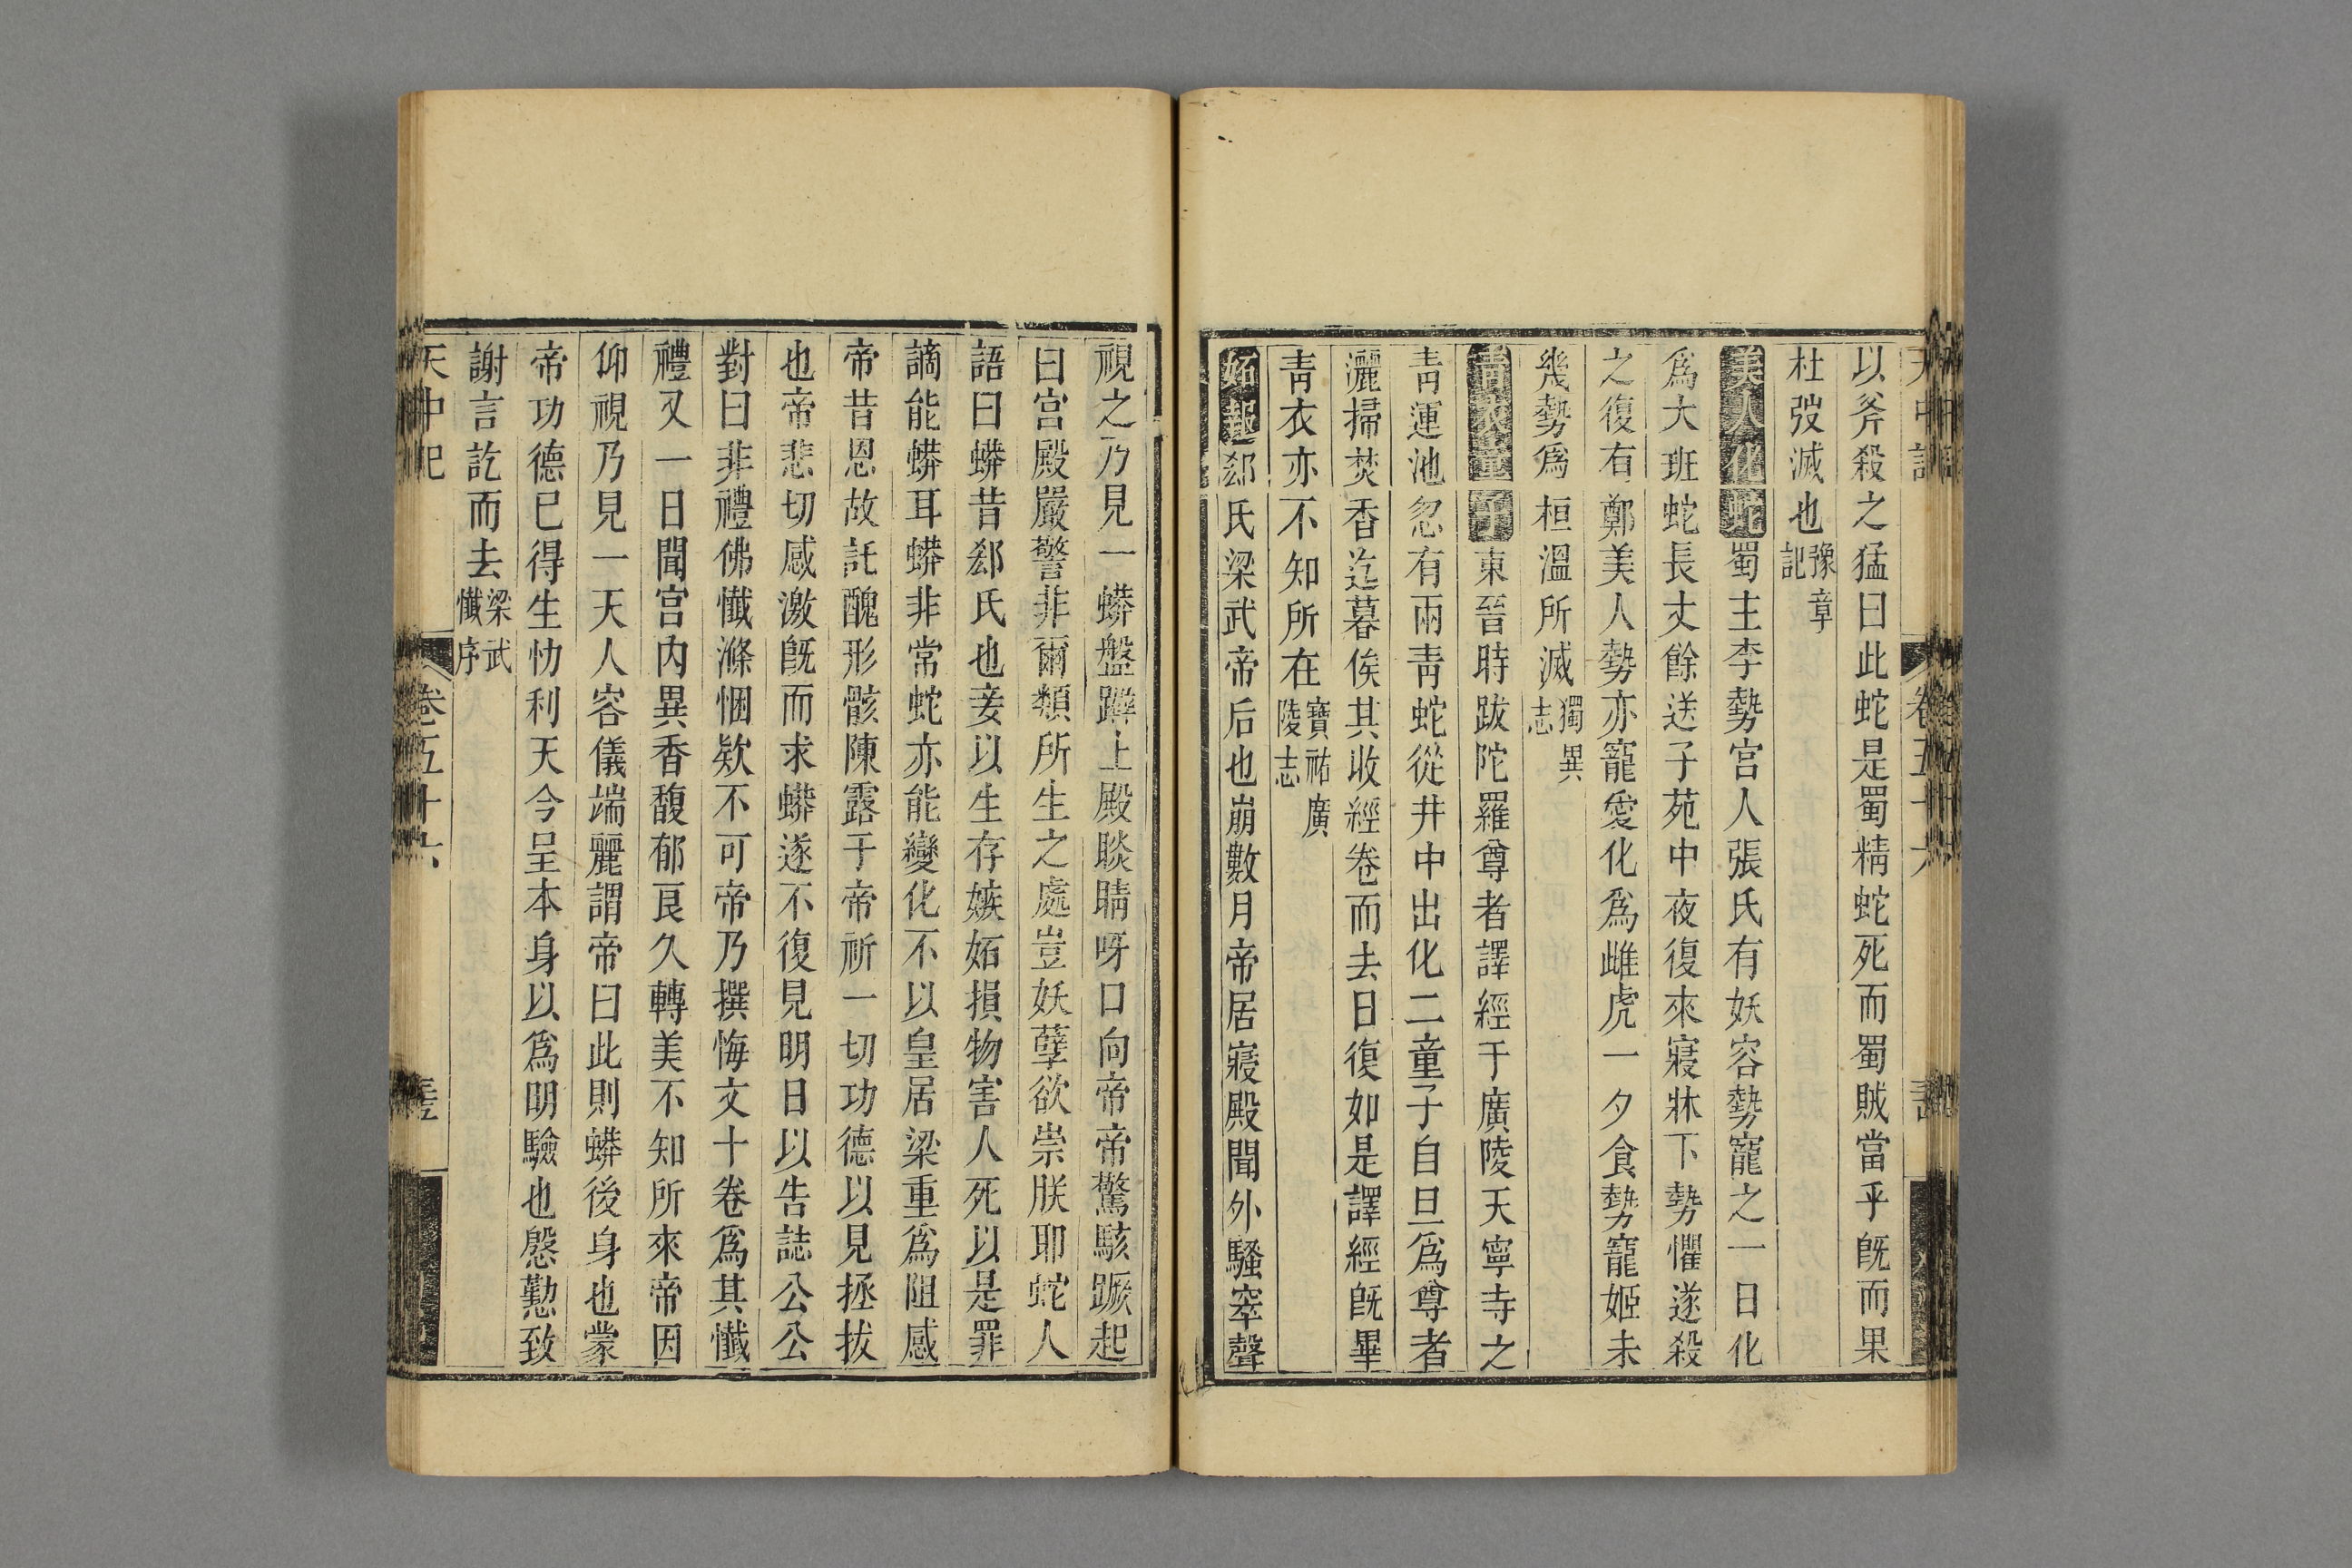 以斧殺之猛曰此蛇是蜀精蛇死而蜀賊當乎旣而果
杜弢滅也豫章記
美人化蛇蜀主李勢宮人張氏有妖容勢寵之一日化
爲大班蛇長丈餘送子苑中夜復來寢牀下勢懼遂殺
之復有鄭美人勢亦寵愛化爲雌虎一夕食勢寵姬未
幾勢爲桓溫所滅獨異志
青衣童子東晉時跋陀羅尊者譯經于廣陵天寧寺之
靑運池忽有兩靑蛇從井中出化二童子自旦爲尊者
灑掃焚香迄暮俟其收經卷而去日復如是譯經旣畢
靑衣亦不知所在寶祐廣陵志
妬郄氏梁武帝后也崩數月帝居寢殿聞外騷窣聲
視之乃見一蟒盤躃上殿睒睛呀口向帝帝驚駭蹶起
曰宮殿嚴警非爾類所生之處豈妖孽欲祟朕耶蛇人
語曰蟒昔郄氏也妾以生存嫉妬損物害人死以是罪
謫能蟒耳蟒非常蛇亦能變化不以皇居梁重爲阻感
帝昔恩故託醜形骸陳露于帝祈一切功德以見拯拔
也帝悲切感激旣而求蟒遂不復見明日以告誌公公
對曰非禮佛懺滌悃欵不可帝乃撰悔文十卷爲其懺
禮又一日聞宮內異香馥郁良久轉美不知所來帝因
仰視乃見一天人容儀端麗謂帝曰此則蟒後身也蒙
帝功德巳得生忉利天今呈本身以爲明驗也慇懃致
謝言訖而去梁武懺序
天中記 卷五十六